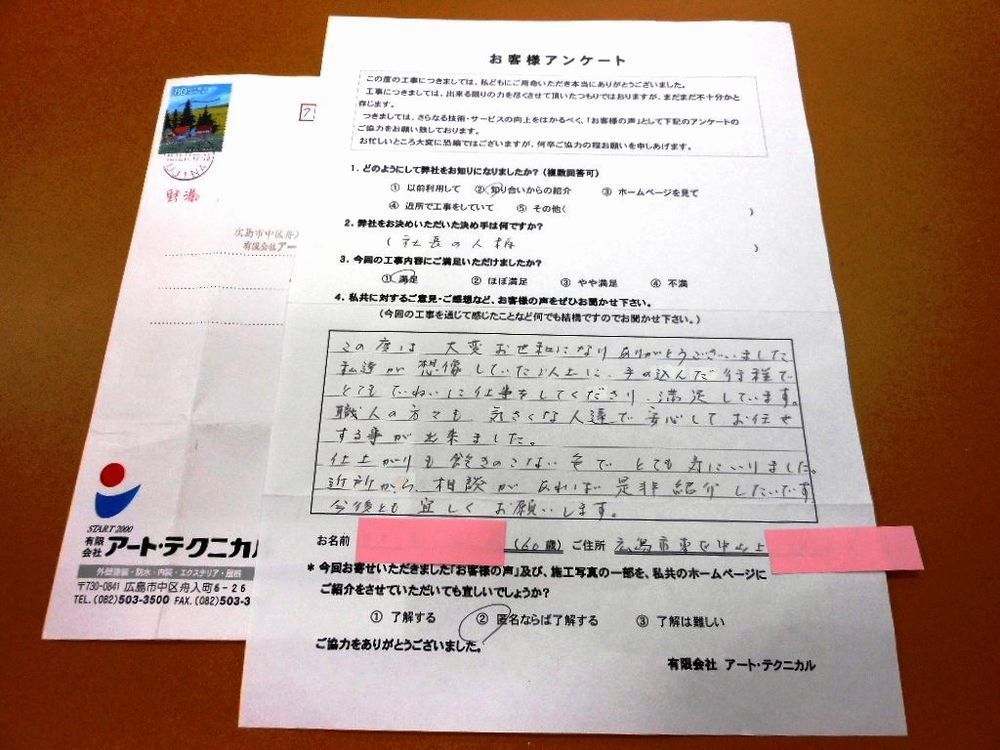 お客様アンケート
この度の工事につきましては、私どもにご用命いただき本当にありがとうございました。
工事につきましては、出来る限りの力を尽くさせて頂いたつもりではありますが、まだまだ不十分かと
存じます。
つきましては、さらなる技術・サービスの向上をはかるべく、「お客様の声」として下記のアンケートの
ご協力をお願い致しております。
お忙しいところ大変に恐縮ではございますが、何卒ご協力の程お願いを申しあげます。
1. どのようにして弊社をお知りになりましたか?(複数回答可)
① 以前利用して ② 知り合いからの紹介 ③ ホームページを見て
④ 近所で工事をしていて ⑤ その他( )
2. 弊社をお決めいただいた決め手は何ですか?
( 社長の人柄 )
3. 今回の工事内容にご満足いただけましたか?
① 満足 ② ほぼ満足 ③ やや満足 ④ 不満
4. 私共に対するご意見・ご感想など、お客様の声をぜひお聞かせ下さい。
(今回の工事を通じて感じたことなど何でも結構ですのでお聞かせ下さい。)
この度は 大変お世話になりありがとうございました
私達が想像していた以上に、手の込んだ行程で
とてもていねいに仕事をしてくださり、満足しています。
職人の方々も 気さくな人達で安心してお任せ
する事が出来ました。
仕上がりも飽きのこない色で とても気にいりました。
近所から、相談があれば是非紹介したいです
今後とも宜しくお願いします。
お名前 (60歳) ご住所 広島市東区中山上
* 今回お寄せいただきました「お客様の声」及び、施工写真の一部を、私共のホームページに
ご紹介をさせていただいても宜しいでしょうか?
① 了解する ② 匿名ならば了解する ③ 了解は難しい
ご協力をありがとうございました。
有限会社 アート・テクニカル
80
7
UJINA
広島市中区舟入
有限会社アー
START 2000
有限会社 アート・テクニカル
外壁塗装・防水・内装・エクステリア・屋根
〒730-0841 広島市中区舟入町6-26
TEL.(082)503-3500 FAX.(082)503-3